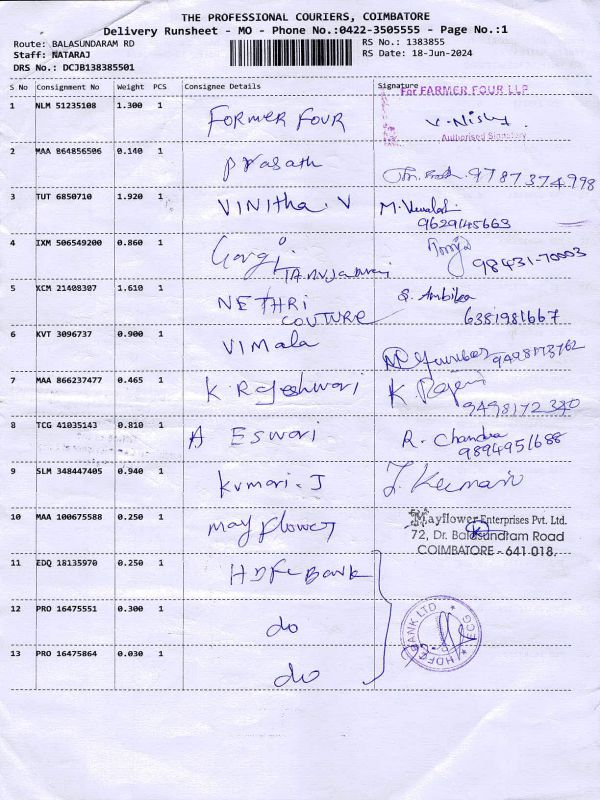 THE PROFESSIONAL COURIERS, COIMBATORE
Delivery Runsheet - MO - Phone No.:0422-3505555 - Page No.:1
Route: BALASUNDARAM RD
Staff: NATARAJ
DRS No.: DCJB138385501
RS No.: 1383855
RS Date: 18-Jun-2024
S No Consignment No Weight PCS Consignee Details Signature
For FARMER FOUR LLP
1 NLM 51235108 1.300 1 FORMER FOUR V. Nishy
Authorised Signatory
2 MAA 864856506 0.140 1 Prasath 9787374998
3 TUT 6850710 1.920 1 VINitha. V M.
9629145663
4 IXM 506549200 0.860 1 Gorgi 98431-70003
5 KCM 21408307 1.610 1 NETHRI COUTURE S. Ambika
6381981667
6 KVT 3096737 0.900 1 VIMala
7 MAA 866237477 0.465 1 K. Rajeshwari K. Rajeswari
9498172340
8 TCG 41035143 0.810 1 A Eswari R. Chandra
9894951688
9 SLM 348447405 0.940 1 Kumari. J J. Kumari
10 MAA 100675588 0.250 1 May flower Mayflower Enterprises Pvt. Ltd.
72, Dr. Balasundram Road
COIMBATORE - 641 018.
11 EDQ 18135970 0.250 1 HDFC Bank
12 PRO 16475551 0.300 1 do
HDFC BANK LTD ECG
13 PRO 16475864 0.030 1 do